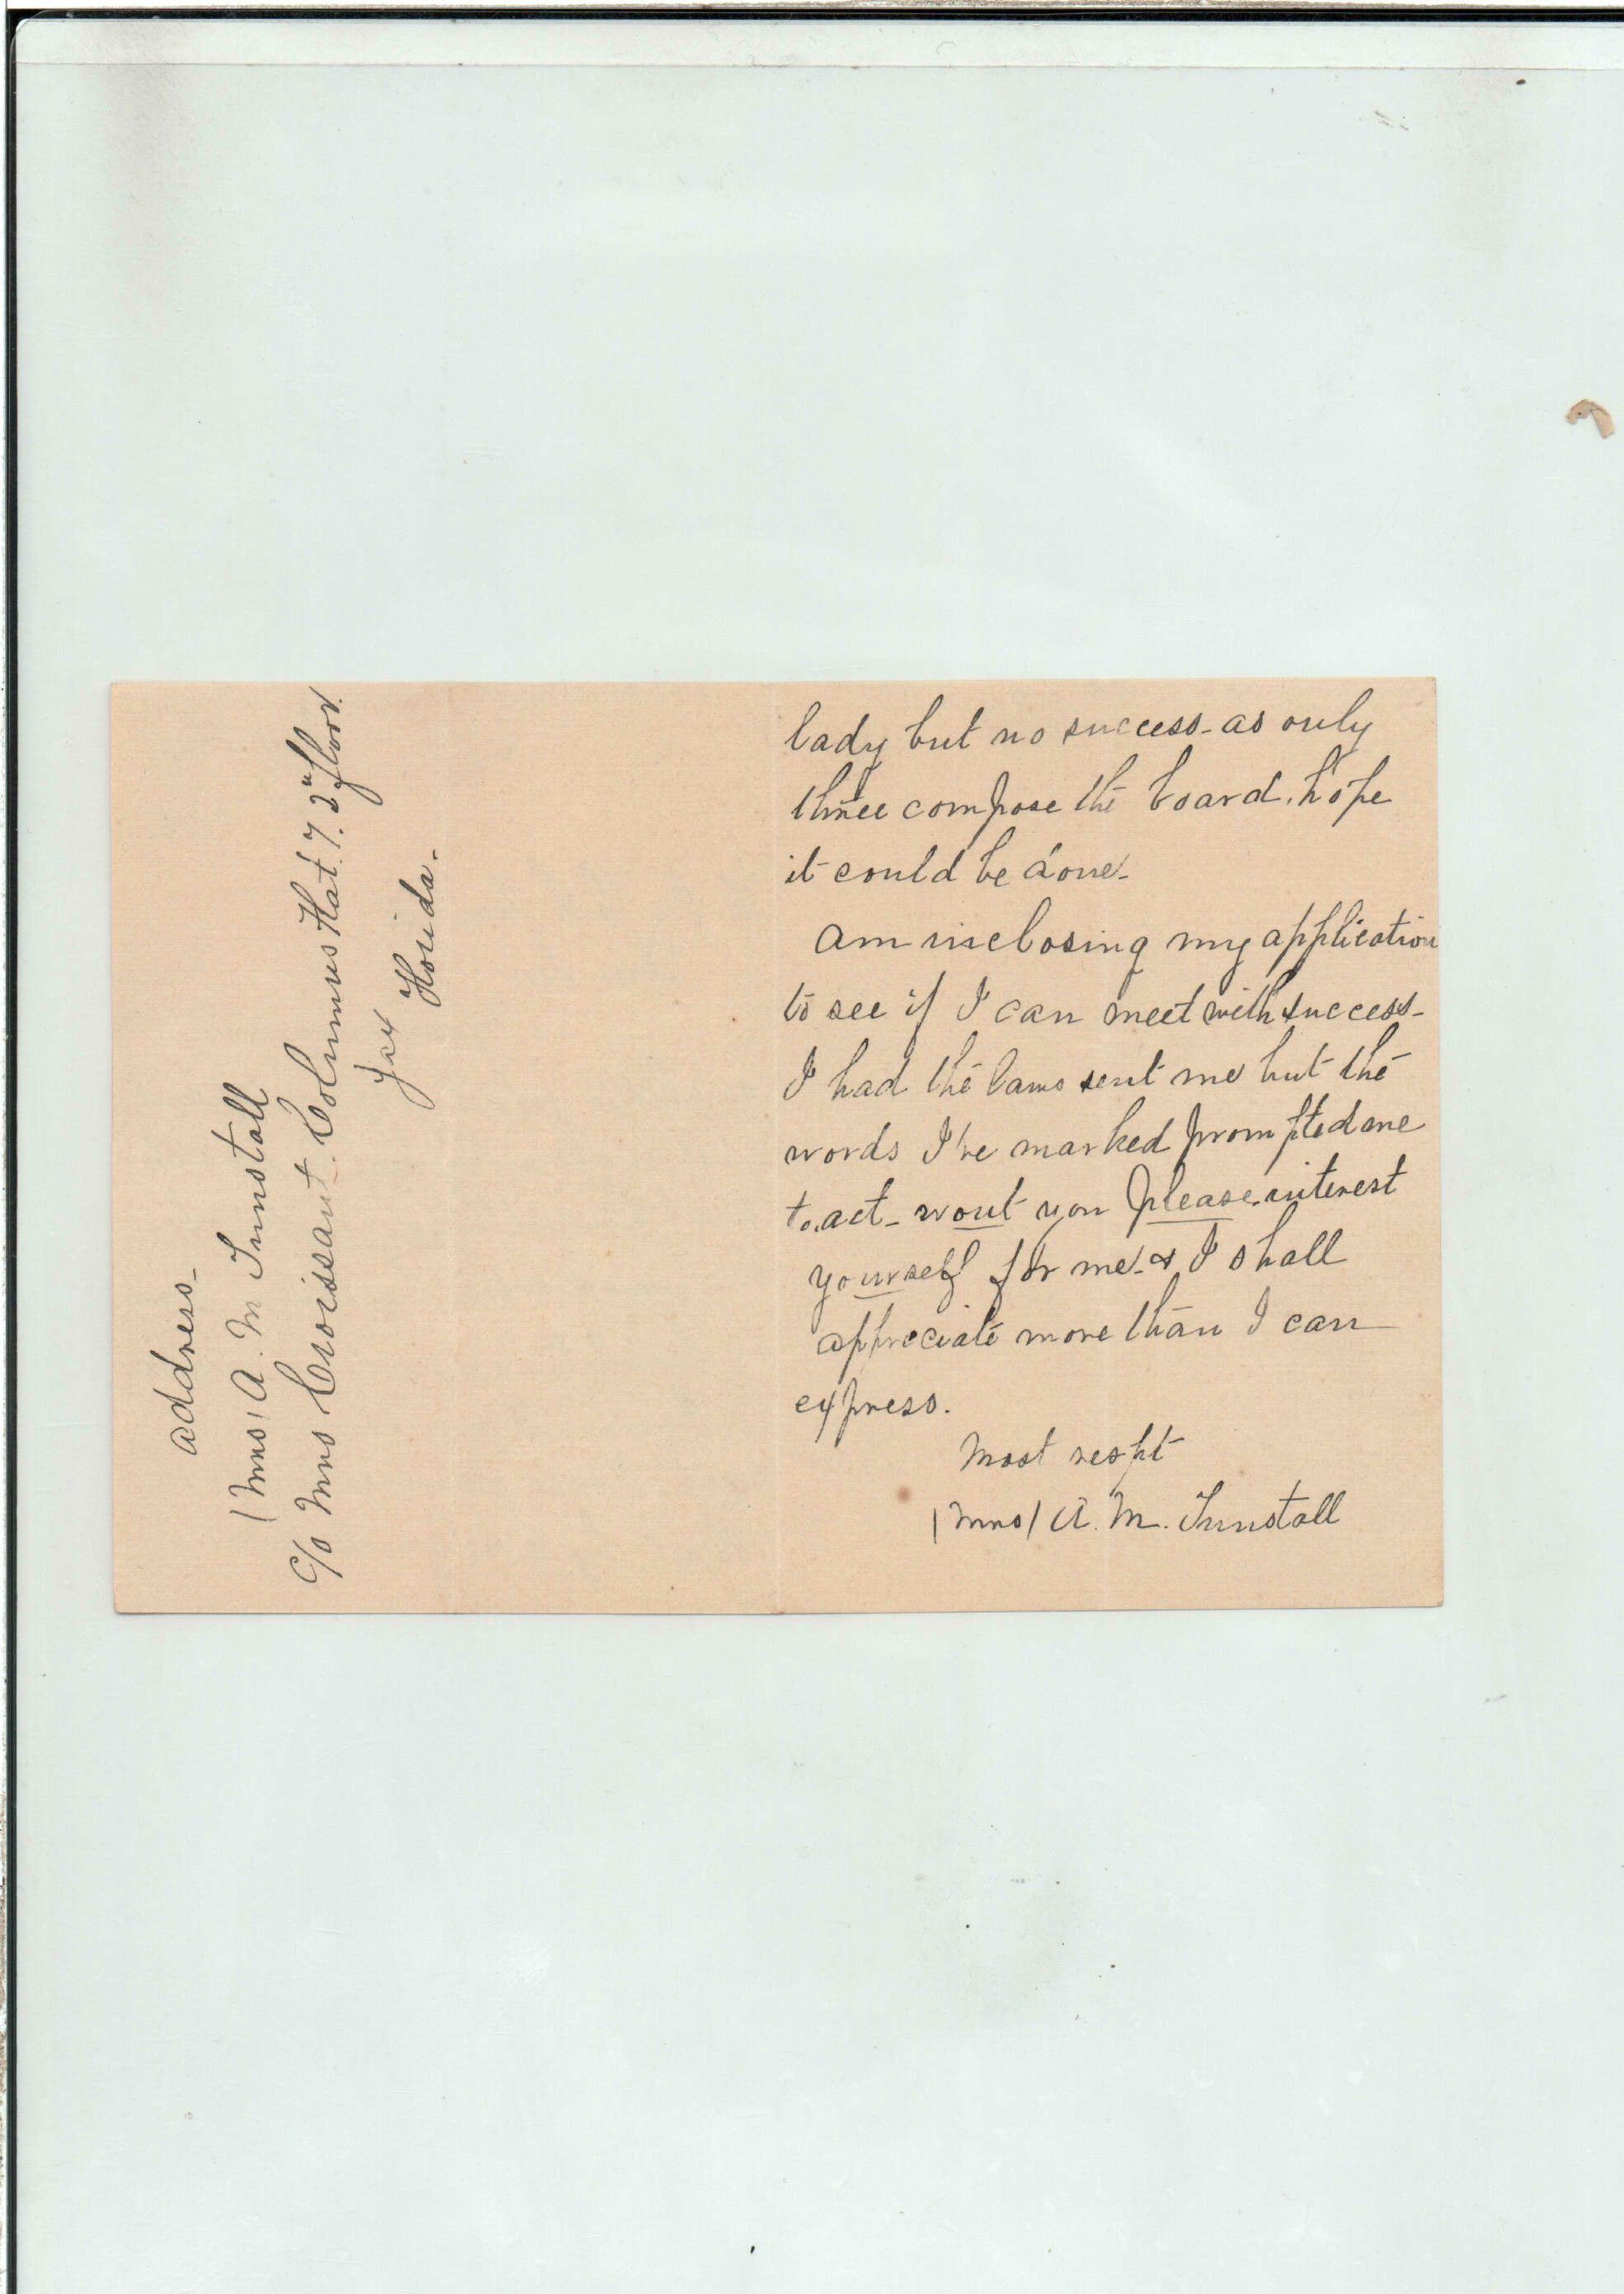 lady but no success - as only
three compose the board. hope
it could be done -
am inclosing my application
to see if I can meet with success -
I had the laws sent me but the
words I've marked prompted me
to act - wont you please interest
yourself for me - & I shall
appreciate more than I can
express.
Most respt
(Mrs) A. M. Tunstall
address -
(Mrs) A. M Tunstall
c/o Mrs Croissant. Flat. 7. 3" floor.
Jax Florida -